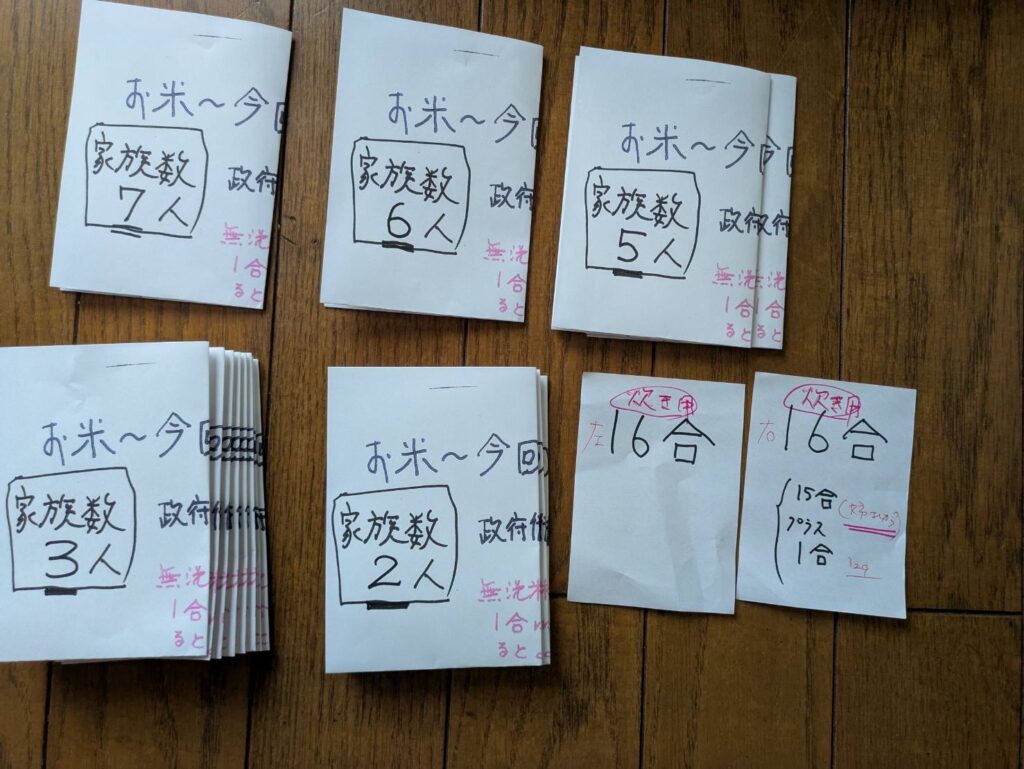 お米～今回
家族数
7人
政府
無洗
1合
ると
お米～今回
家族数
6人
政府
無洗
1合
ると
お米～今
家族数
5人
政府
無洗
1合
ると
お米～今回
家族数
3人
政府
無洗
1合
ると
お米～今回
家族数
2人
政府備
無洗米
1合
ると
炊き用
左 16合
炊き用
右 16合
15合
プラス
1合